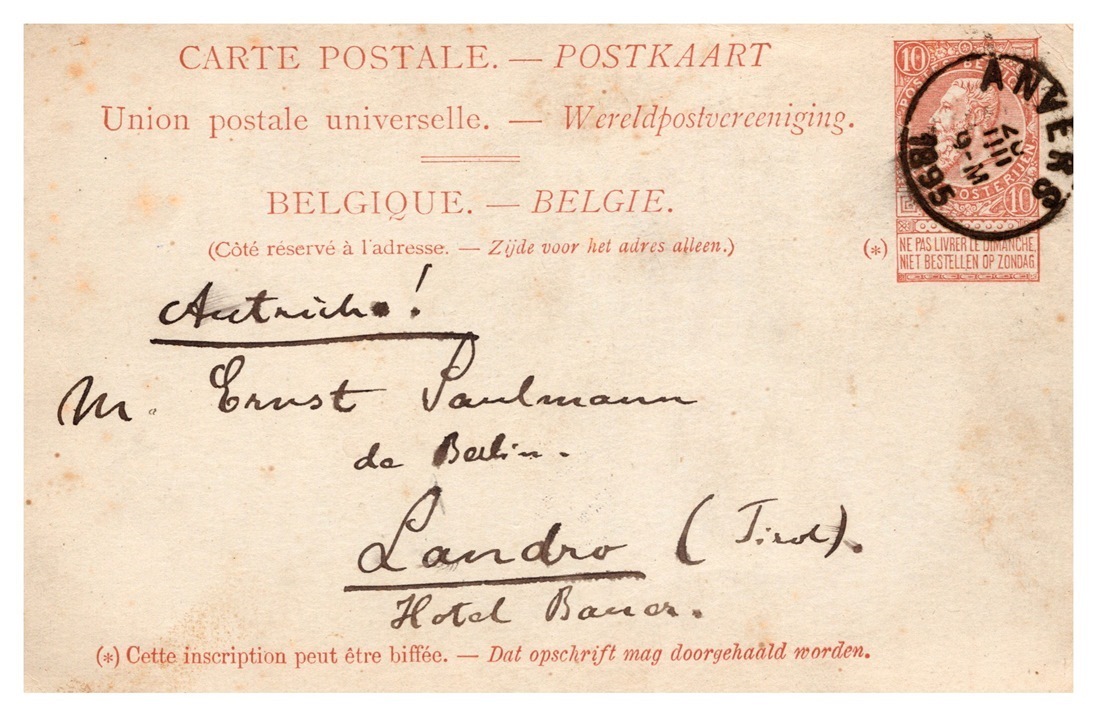 CARTE POSTALE. — POSTKAART
Union postale universelle. — Wereldpostvereeniging.
BELGIQUE. — BELGIE.
(Côté réservé à l'adresse. — Zijde voor het adres alleen.)
10
10
POSTERIJEN
ANVERS
9-M
1895
(*)
NE PAS LIVRER LE DIMANCHE,
NIET BESTELLEN OP ZONDAG
Autriche!
M. Ernst Paulmann
de Berlin.
Landro (Tirol).
Hotel Bauer.
(*) Cette inscription peut être biffée. — Dat opschrift mag doorgehaald worden.